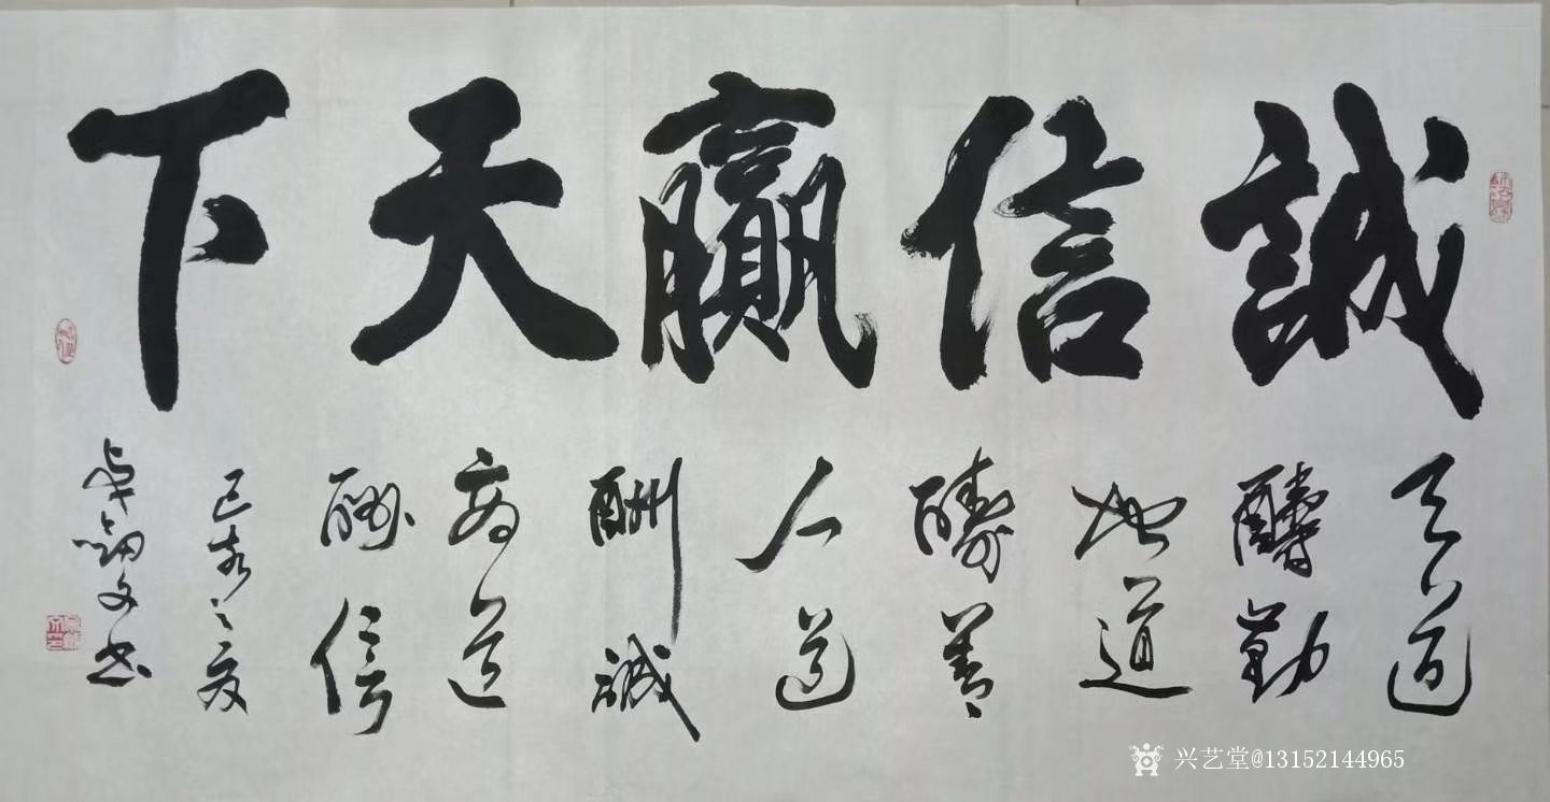 誠信贏天下
天道
醻勤
地道
醻善
人道
酬誠
商道
酬信
己亥之夏
文书
兴艺堂@13152144965